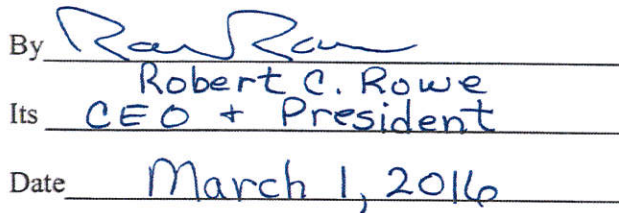 By
Robert C. Rowe
Its CEO + President
Date March 1, 2016